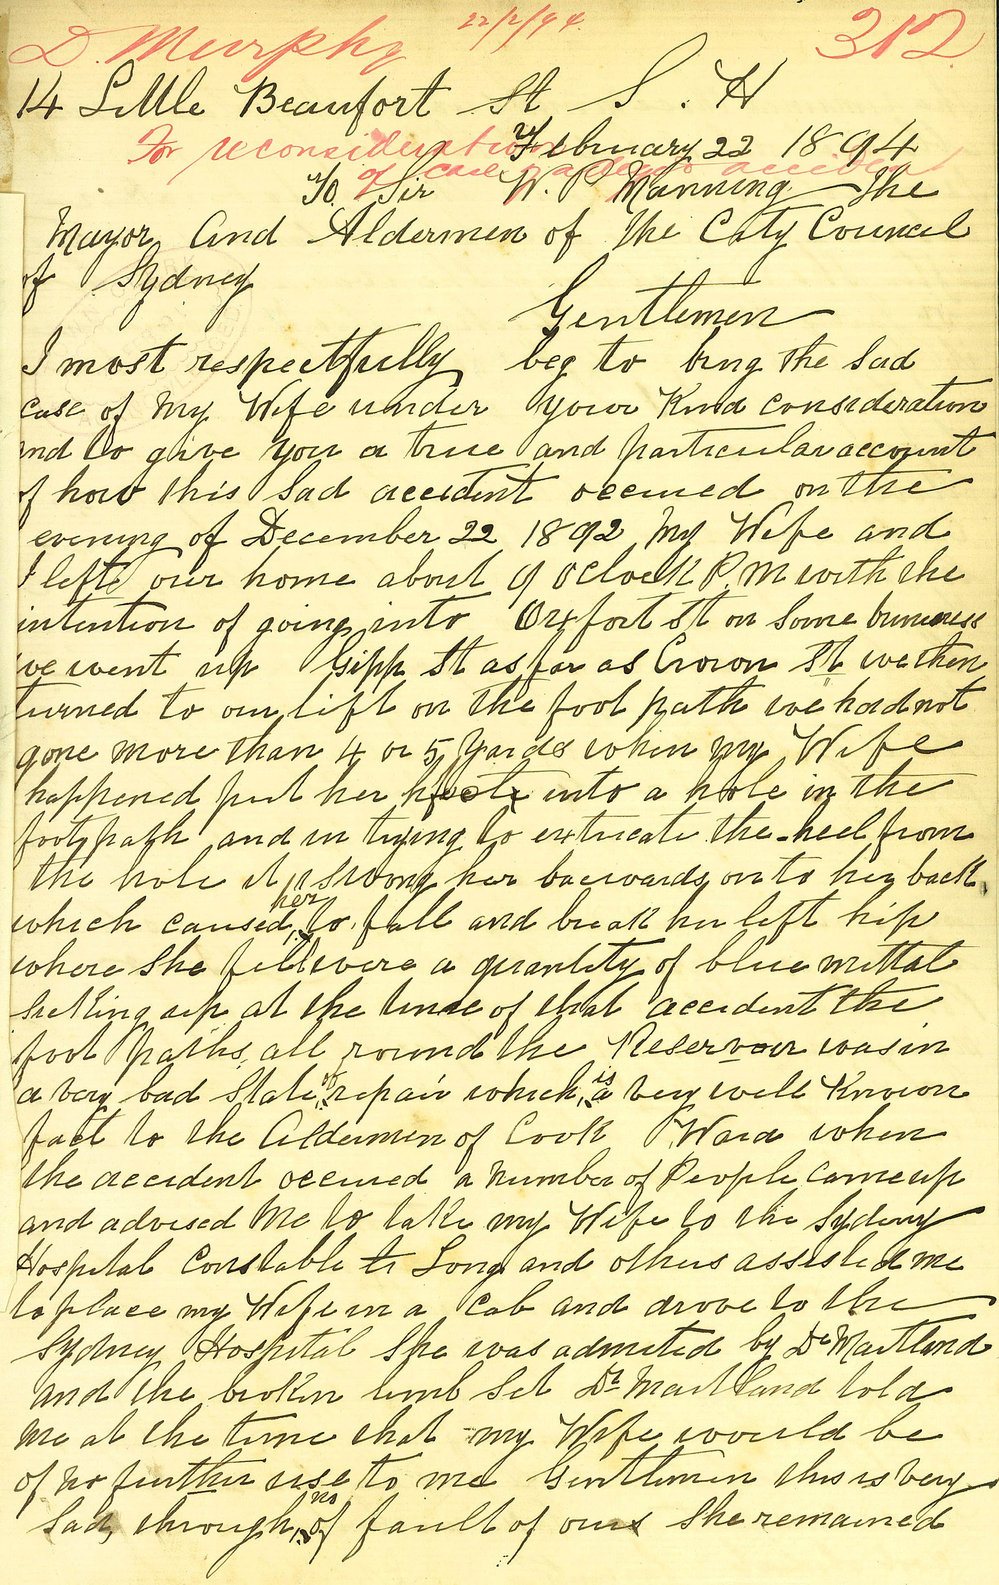 D. Murphy 22/2/94. 312
14 Little Beaufort St S. H
For reconsideration February 22 1894
of case
To Sir W. P Manning The
Mayor and Aldermen of the City Council
of Sydney
Gentlemen
I most respectfully beg to bring the Sad
case of My Wife under your Kind consideration
and to give you a true and particular account
of how this Sad accident occured on the
evening of December 22 1892 My Wife and
I left our home about 9 oclock P.M with the
intention of going into Oxfort St on Some
we went up Gipp St as far as Crown St we then
turned to our left on the foot path we had not
gone more than 4 or 5 yards when my Wife
happened put her into a hole in the
footpath and in trying to extricate the heel from
the hole it swong her bacwards on to her back
which caused her to fall and break her left hip
where She fell were a quantity of blue mettal
sticking up at the time of that accident the
foot paths all round the Reservour was in
a very bad State of repair which is a very well Known
fact to the Aldermen of Cook Ward when
the accident occured a number of People came up
and advised Me to take my Wife to the Sydney
Hospital Constable Long and others assisted me
to place my Wife in a Cab and drove to the
Sydney Hospital She was admited by Dr Maitland
and the broken limb Set Dr Maitland told
me at the time that my Wife would be
of no further use to me Gentlemen this is very
Sad, through no of fault of ours She remained